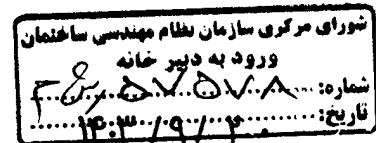 شورای مرکزی سازمان نظام مهندسی ساختمان
ورود به دبیر خانه
شماره: ۵۷۵۷۸
تاریخ: ۱۴۰۳/۹/۲۰